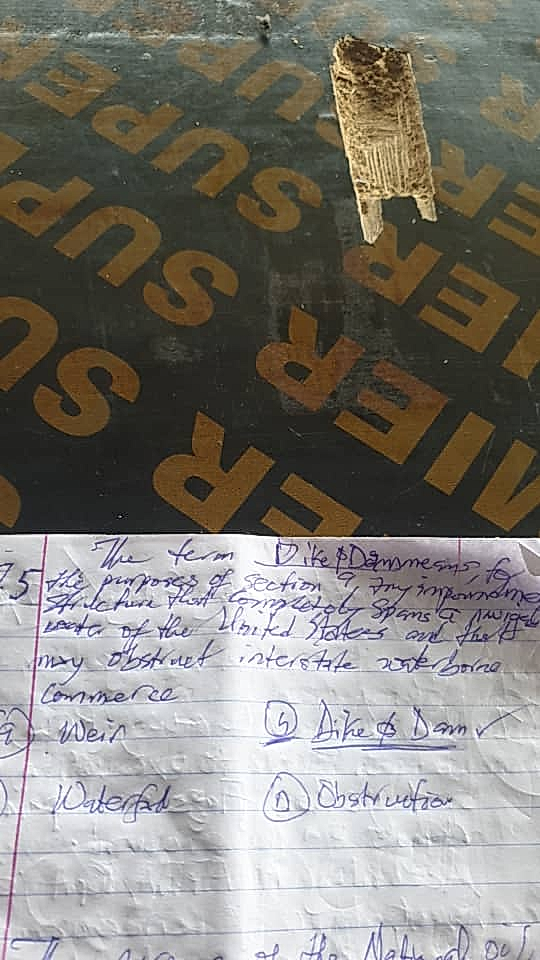 SUPER
SUPE
SUPER
SUPER
ER
IER
NIER
"The term Dike & Dam means, for
25 the purposes of section 9 any impoundme
structure that completely spans a naviga
water of the United States and that
may obstruct interstate waterborne
Commerce
(a) Weir (b) Dike & Dam ✓
Waterfall (D) Obstruction
of the National oil